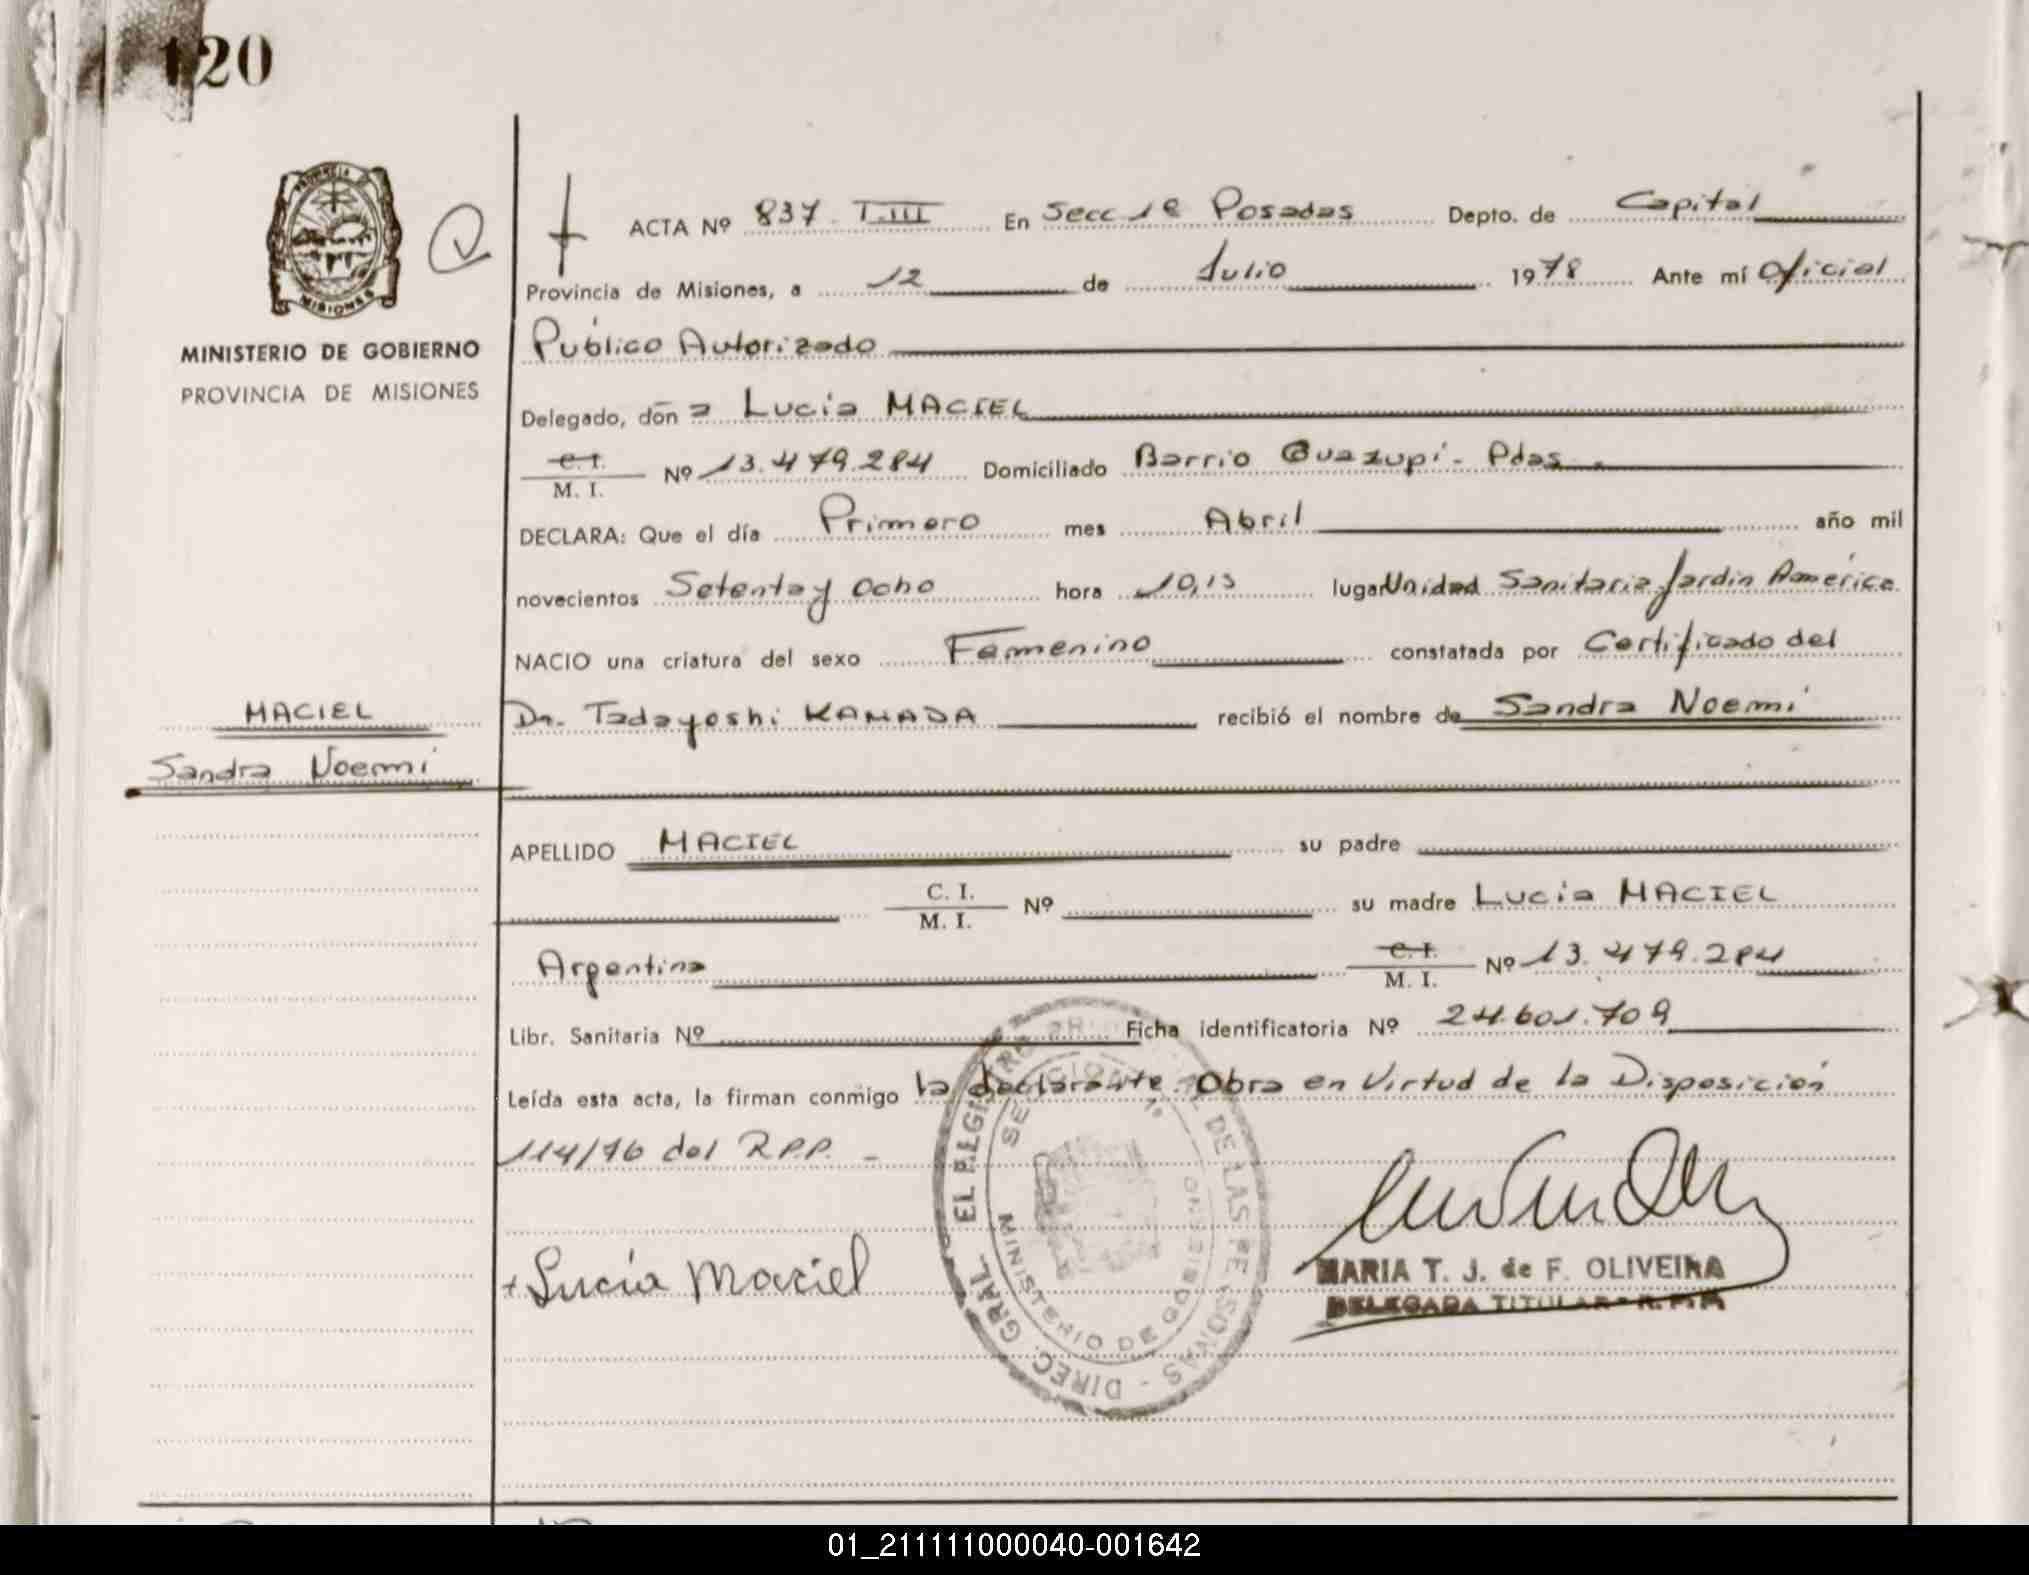 120
PROVINCIA
MISIONES
MINISTERIO DE GOBIERNO
PROVINCIA DE MISIONES
MACIEL
Sandra Noemi
ACTA Nº 837 T.III En Secc 1ª Posadas Depto. de Capital
Provincia de Misiones, a 12 de Julio 1978 Ante mí Oficial
Público Autorizado
Delegado, don a Lucia MACIEL
C. I.
M. I. Nº 13.479.284 Domiciliado Barrio Guazupi - Pdas.
DECLARA: Que el día Primero mes Abril año mil
novecientos Setenta y Ocho hora 10,15 lugar Unidad Sanitaria Jardin América
NACIO una criatura del sexo Femenino constatada por Certificado del
Dr. Tadayoshi KAMADA recibió el nombre de Sandra Noemi
APELLIDO MACIEL su padre
C. I.
M. I. Nº su madre Lucia MACIEL
Argentina C. I.
M. I. Nº 13.479.284
Libr. Sanitaria Nº Ficha identificatoria Nº 24.601.709
Leída esta acta, la firman conmigo la declarante. Obra en Virtud de la Disposición
114/76 del R.P.P. -
Lucía Maciel
MARIA T. J. de F. OLIVEIRA
DELEGADA TITULAR - R. P. P.
DIREC. GRAL. EL REGISTRO DE LAS PERSONAS -
MINISTERIO DE GOBIERNO
01_211111000040-001642